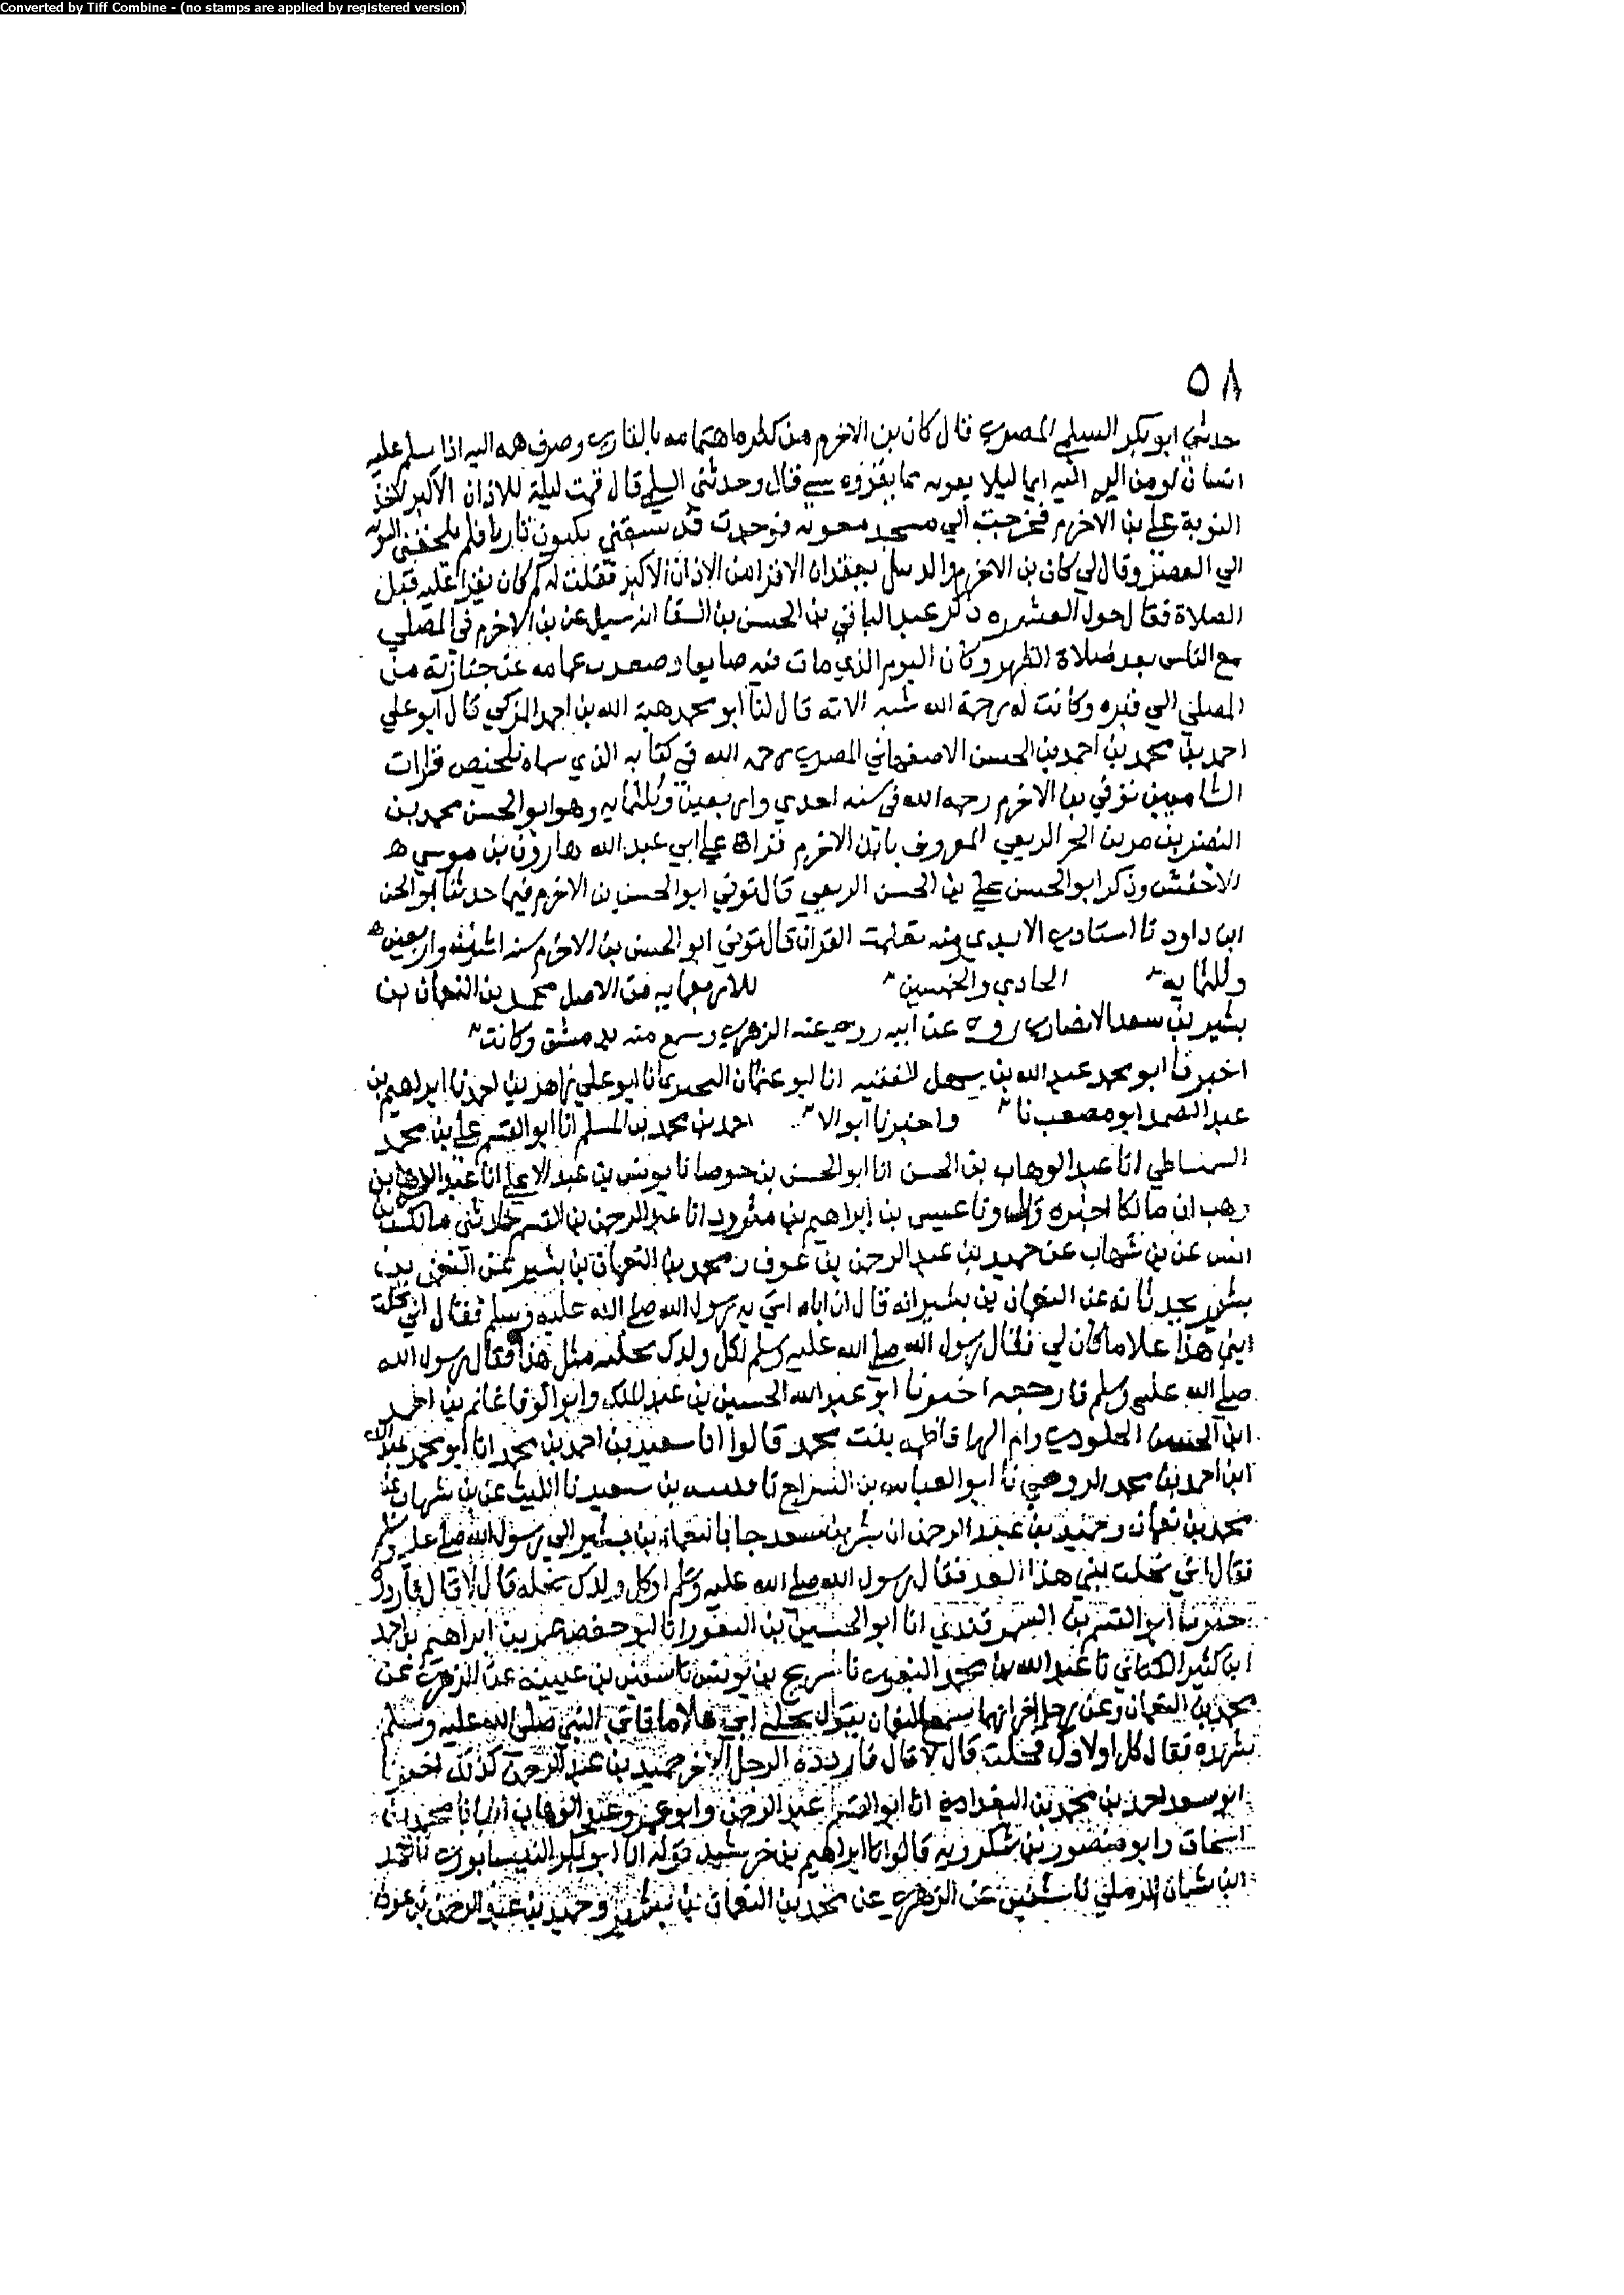 Converted by Tiff Combine - (no stamps are applied by registered version)
٥٨
حدثني ابو بكر السلمي المصري قال كان بن الاخرم من كثرة اهتمامه بالقاري وصرف همه اليه اذا سلم عليه
انسان لو من اليه ايما ليلا يفوته مما يقروه شي قال وحدثني السلمي قال قمت ليلة للاذان الاكبر لاخذ
النوبة علي بن الاخرم فخرجت الي مسجد معويه فوجدت قد سبقني ثلثون قاريا فلم تلحقني النوبه
الي العصر وقال لي كان بن الاخرم من الاذان الاكبر فقلت له كم كان يقرا عليه قبل
الصلاة فقال حول العشره ذكر عبد الباقي بن الحسن بن السقا انه سيل عن بن الاخرم في المصلي
مع الناس بعد صلاة الظهر وكان اليوم الذي مات فيه صايفا وصعدت غمامه عن جنازته من
المصلي الي قبره وكانت له رحمة الله شبه الايه قال لنا ابو محمد هبة الله بن احمد المزكي قال ابو علي
احمد بن محمد بن احمد بن الحسن الاصفهاني المصري رحمه الله في كتابه الذي سماه تلخيص قراات
الشاميين توفي بن الاخرم رحمه الله في سنه احدي واربعين وثلثمايه وهو ابو الحسن محمد بن
النضر بن مر بن الحر الربعي المعروف بابن الاخرم قراة علي ابي عبد الله هارون بن موسي
الاخفش وذكر ابو الحسن علي بن الحسن الربعي قال توفي ابو الحسن بن الاخرم فيما حدثنا ابو الحسن
ابن داود نا استادي الاسدي ومنه تعلمت القران قال توفي ابو الحسن بن الاخرم سنه اثنين واربعين
وثلثمايه الحادي والخمسين للاربعمايه من الاصل محمد بن النعمان بن
بشير بن سعد الانصاري روي عن ابيه روي عنه الزهري وسمع منه بدمشق وكانت
اخبرنا ابو محمد عبد الله بن سهل الفقيه انا ابو عثمان البحيري انا ابو علي زاهر بن احمد نا ابراهيم بن
عبد الصمد ابو مصعب نا واخبرنا ابو الا احمد بن محمد بن المسلم انا ابو القسم علي بن محمد
السمساطي انا عبد الوهاب بن الحسن انا ابو الحسن بن حوصا نا يونس بن عبد الاعلي انا
وهب ان مالكا اخبره قال ونا عيسي بن ابراهيم بن مثرود انا عبد الرحمن بن القسم حدثني مالك بن
انس عن بن شهاب عن حميد بن عبد الرحمن بن عوف و محمد بن النعمان بن بشير عن النعمن بن
بشير يحدثانه عن النعمان بن بشير انه قال ان اباه اتي به رسول الله صلي الله عليه وسلم فقال اني نحلت
ابني هذا غلاما كان لي فقال رسول الله صلي الله عليه وسلم لكل ولدك نحلته مثل هذا فقال رسول الله
صلي الله عليه وسلم فارجعه اخبرنا ابو عبد الله الحسين بن عبد الملك وابو الوفا غانم بن احمد
ابن الحسن الجلودي وام البها فاطمه بنت محمد قالوا انا سعيد بن احمد بن محمد انا ابو محمد عبد الله
ابن احمد بن محمد الرومي نا ابو العباس بن السراج نا قتيبه بن سعيد نا الليث عن بن شهاب عن
محمد بن نعمان وحميد بن عبد الرحمن ان بشر بن سعد جا بالنعمان بن بشير الي رسول الله صلي الله عليه وسلم
فقال اني نحلت بني هذا العبد فقال رسول الله صلي الله عليه وسلم اوكل ولدك نحله قال لا قال فاردد
اخبرنا ابو القسم بن السمرقندي انا ابو الحسين بن النقور انا ابو حفص عمر بن ابراهيم بن احمد
ابن كثير الكتاني نا عبد الله بن محمد البغوي نا سريج بن يونس نا سفين بن عيينه عن الزهري عن
محمد بن النعمان وعن رجل اخر انهما سمعا النعمان يقول نحلني ابي غلاما فاتي النبي صلي الله عليه وسلم
يشهده فقال كل اولادك نحلت قال لا قال فاردده الرجل الاخر حميد بن عبد الرحمن كذلك اخبرنا
ابو سعد احمد بن محمد بن البغدادي انا ابو القسم عبد الرحمن وابو عمرو عبد الوهاب ابنا محمد بن
اسحاق وابو منصور بن شكرويه قالوا انا ابراهيم بن خرشيد قوله انا ابو بكر النيسابوري نا احمد
ابن شيبان الرملي نا سفين عن الزهري عن محمد بن النعمان بن بشير وحميد بن عبد الرحمن بن عوف